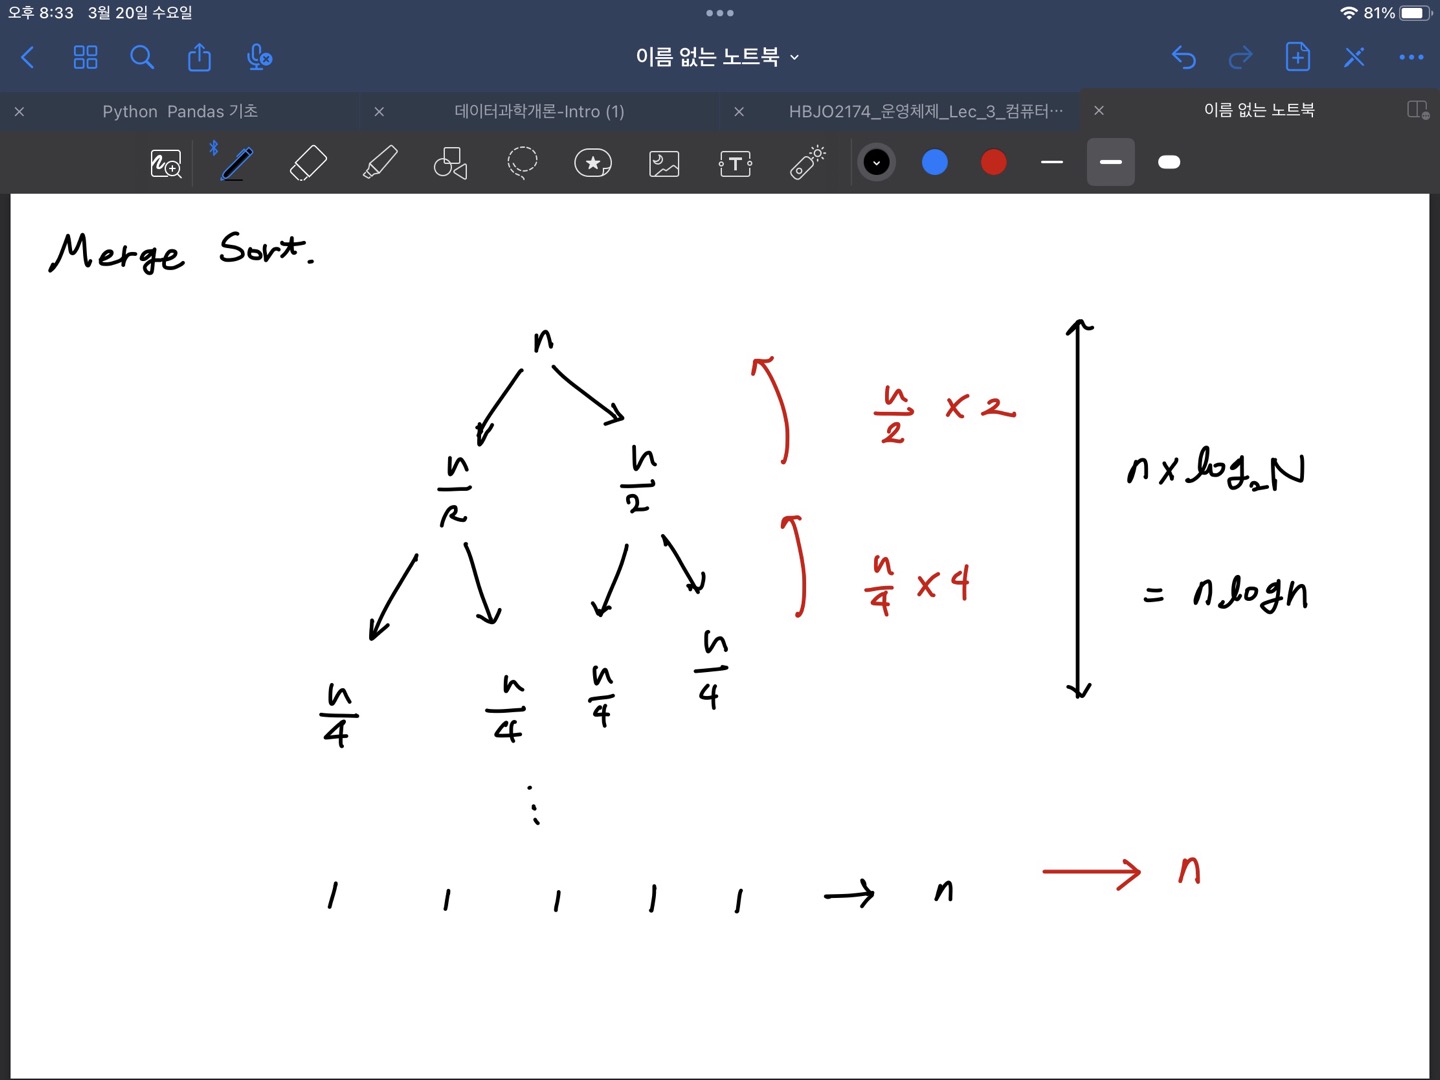 오후 8:33 3월 20일 수요일
81%
이름 없는 노트북
Python Pandas 기초
데이터과학개론-Intro (1)
HBJO2174_운영체제_Lec_3_컴퓨터…
이름 없는 노트북
T
Merge Sort.
n
n/2 n/2
n/2 × 2
n × log₂N
n/4 n/4 n/4 n/4
n/4 × 4
= nlogn
⋮
1 1 1 1 1 → n → n